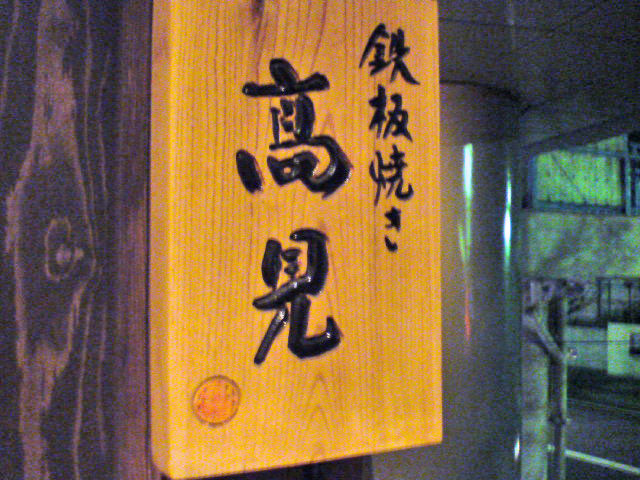 鉄板焼き
髙見